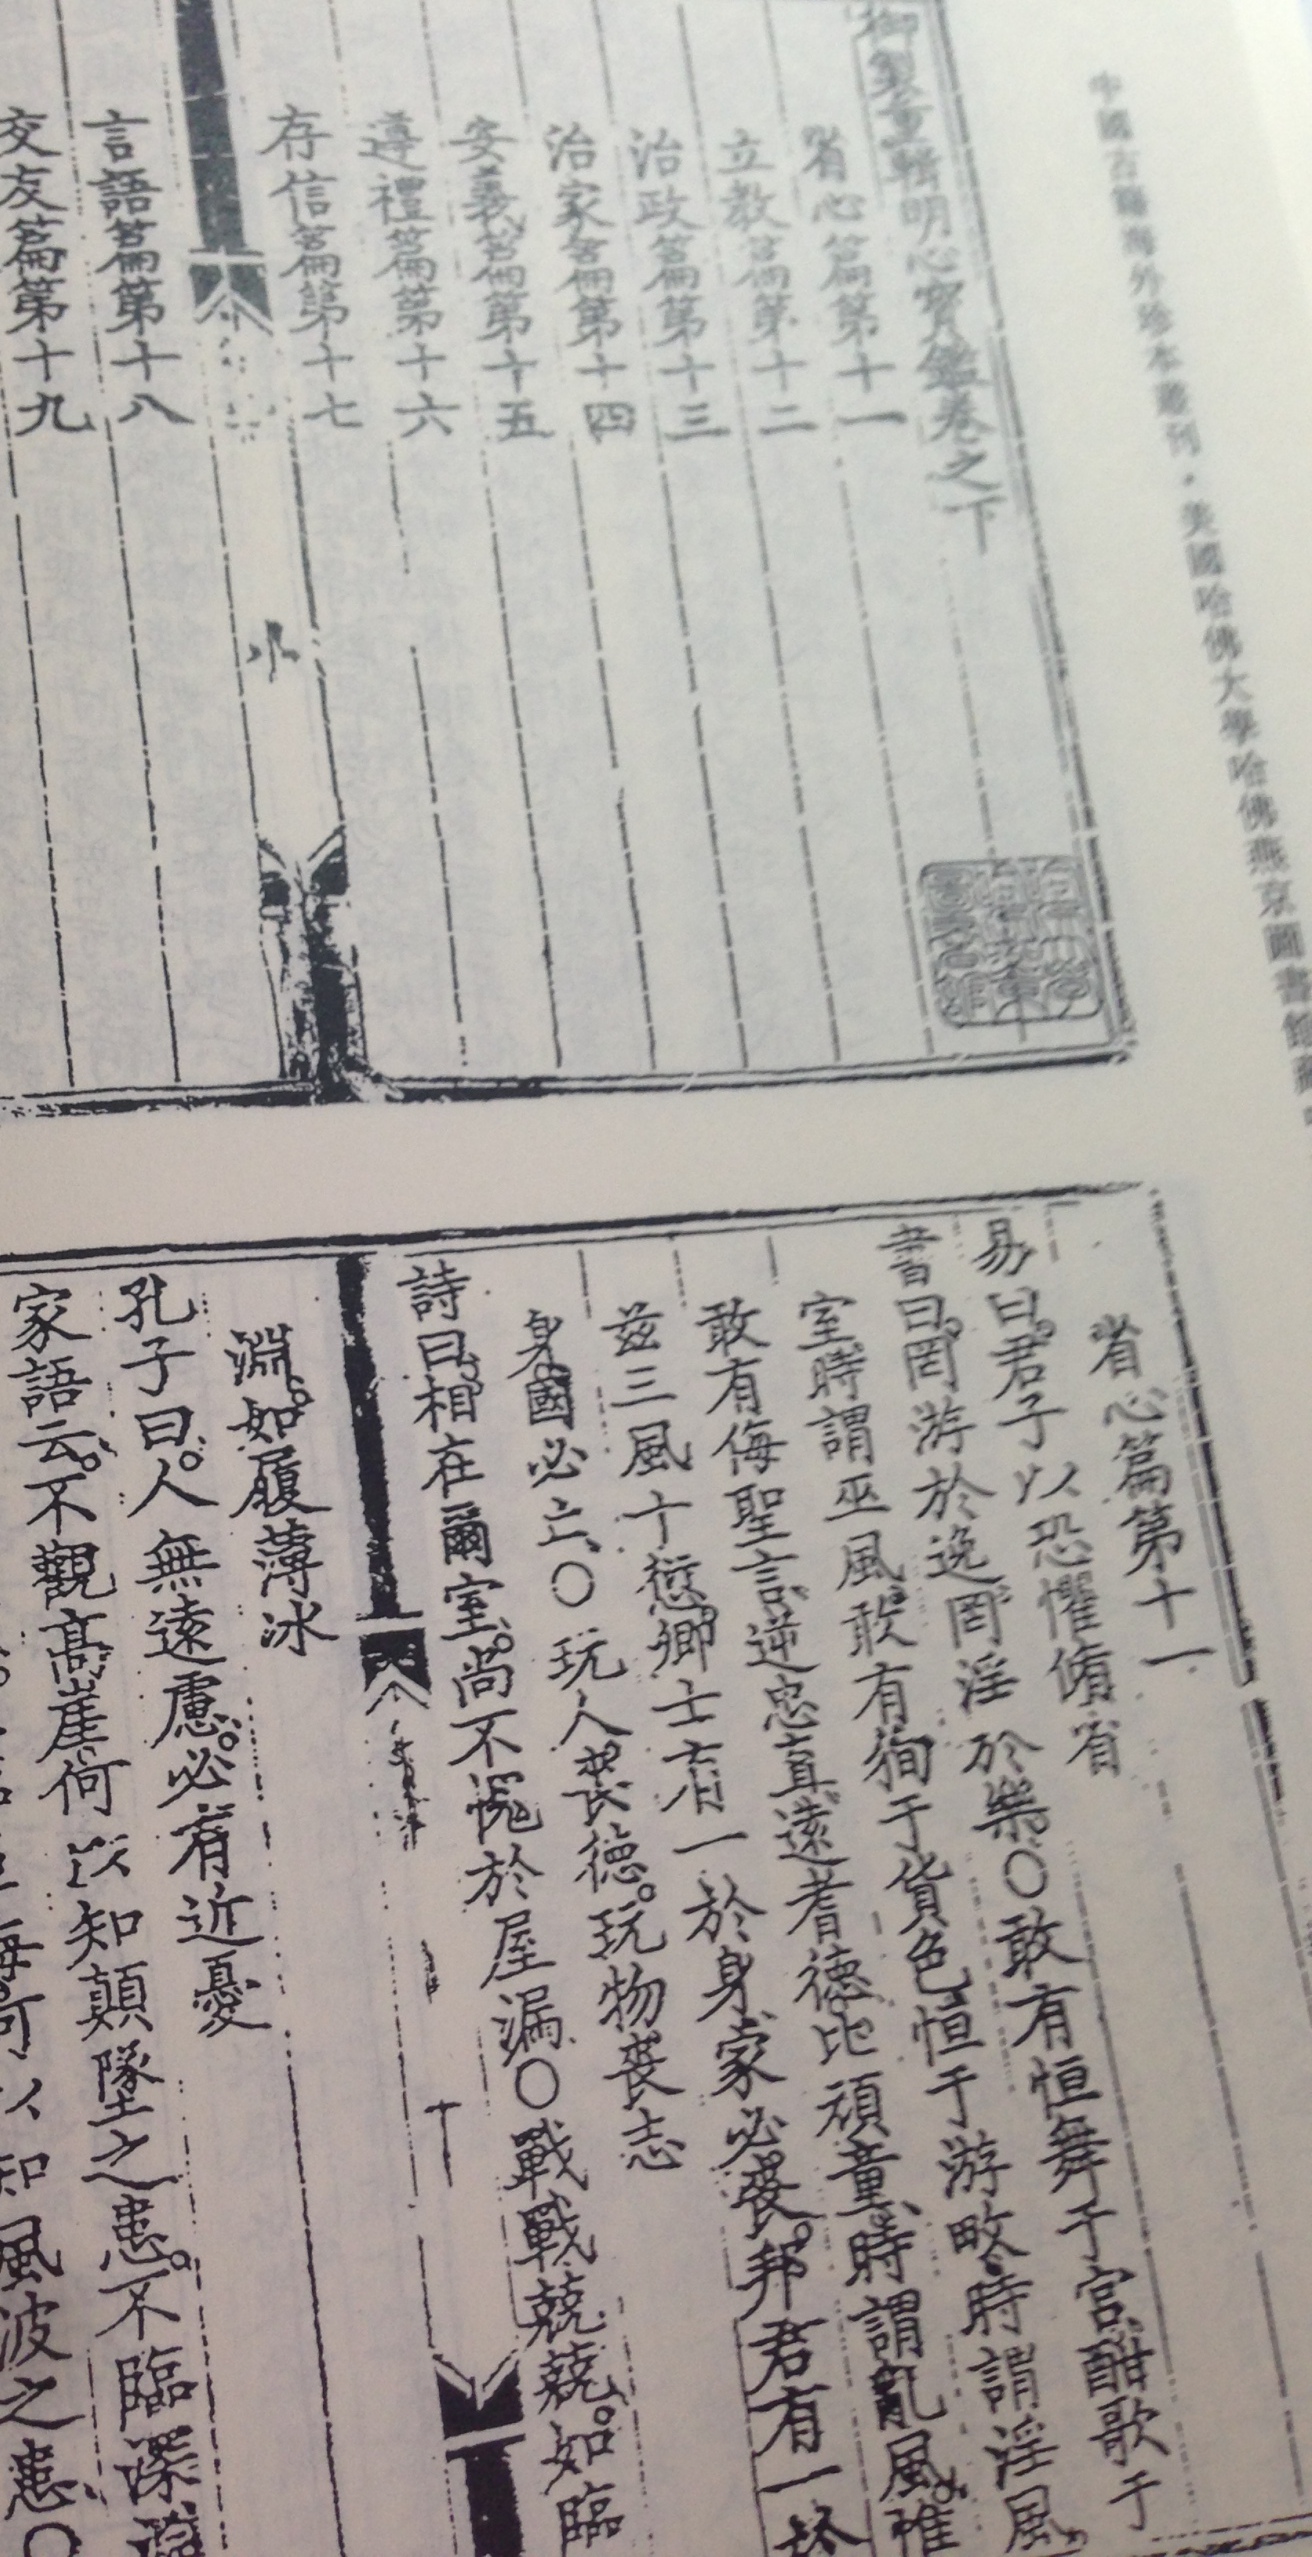 中國古籍海外珍本叢刊·美國哈佛大學哈佛燕京圖書館藏
御製重輯明心寶鑑卷之下
省心篇第十一
立教篇第十二
治政篇第十三
治家篇第十四
安義篇第十五
遵禮篇第十六
存信篇第十七
言語篇第十八
交友篇第十九
省心篇第十一
易曰。君子以恐懼脩省
書曰。罔游於逸。罔淫於樂。○敢有恒舞于宮。酣歌于
室。時謂巫風。敢有徇于貨色。恒于游畋。時謂淫風。
敢有侮聖言。逆忠直。遠耆德。比頑童。時謂亂風。惟
茲三風十愆。卿士有一於身。家必喪。邦君有一於
身。國必亡。○玩人喪德。玩物喪志
詩曰。相在爾室。尚不愧於屋漏。○戰戰兢兢。如臨
淵。如履薄冰
孔子曰。人無遠慮。必有近憂
家語云。不觀高崖。何以知顛墜之患。不臨深
何以知風波之患。○